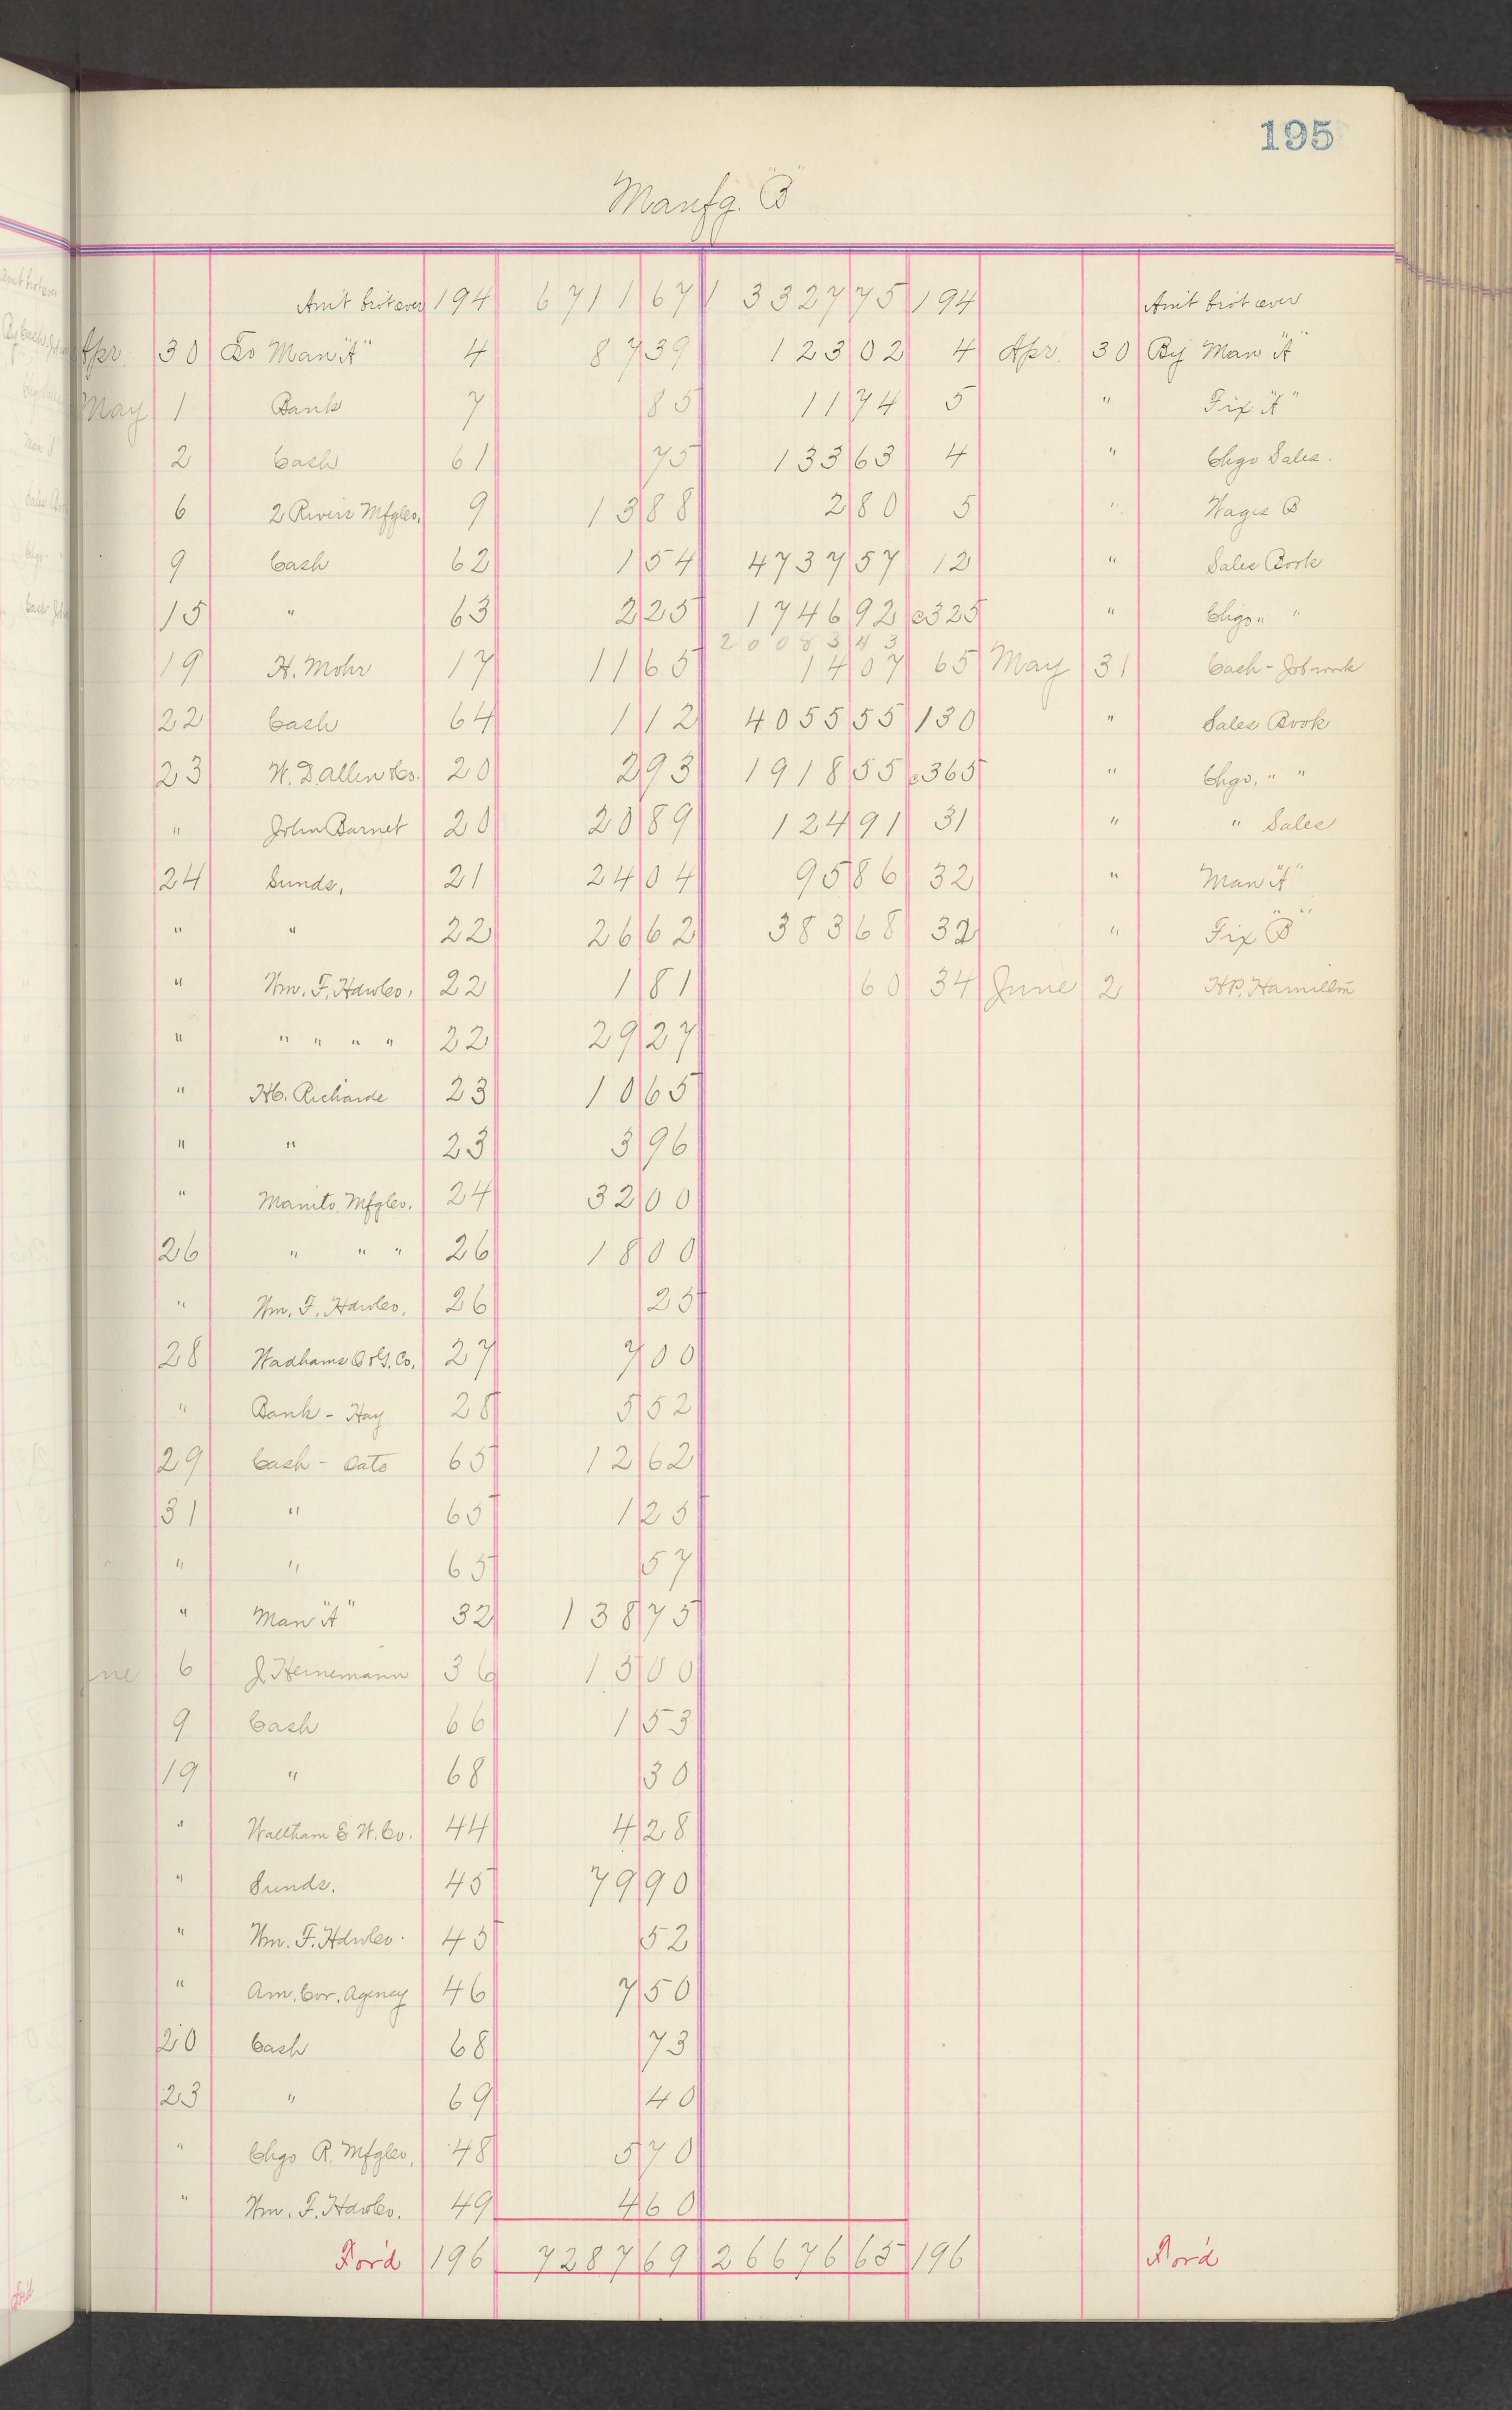 195
Manfg. "B"
Am't bro't over 194 6711 67 13327 75 194 Am't bro't over
Apr. 30 To Man "A" 4 87 39 123 02 4 Apr. 30 By Man "A"
May 1 Bank 7 85 11 74 5 " Fix "A"
2 Cash 61 75 133 63 4 " Chgo Sales.
6 2 Rivers Mfg Co. 9 13 88 2 80 5 " Wages B
9 Cash 62 1 54 4737 57 12 " Sales Book
15 " 63 2 25 1746 92 c325 " Chgo " "
20083 43
19 H. Mohr 17 11 65 14 07 65 May 31 Cash - Jobwork
22 Cash 64 1 12 4055 55 130 " Sales Book
23 W. D. Allen & Co. 20 2 93 1918 55 c365 " Chgo. " "
" John Barnet 20 20 89 124 91 31 " " Sales
24 Sunds. 21 24 04 95 86 32 " Man "A"
" " 22 26 62 383 68 32 " Fix "B"
" Wm. F. Hdw Co. 22 1 81 60 34 June 2 H.P. Hamilton
" " " " " 22 29 27
" H.C. Richards 23 10 65
" " 23 3 96
" Manito. Mfg Co. 24 32 00
26 " " " 26 18 00
" Wm. F. Hdw Co. 26 25
28 Wadhams O & G. Co. 27 7 00
" Bank - Hay 28 5 52
29 Cash - Oats 65 12 62
31 " 65 1 25
" " 65 57
" Man "A" 32 138 75
ne 6 J. Heinemann 36 15 00
9 Cash 66 1 53
19 " 68 30
" Waltham E W. Co. 44 4 28
" Sunds. 45 79 90
" Wm. F. Hdw Co. 45 52
" Am. Cor. Agency 46 7 50
20 Cash 68 73
23 " 69 40
" Chgo R. Mfg Co. 48 5 70
" Wm. F. Hdw Co. 49 4 60
For'd 196 7287 69 26676 65 196 For'd